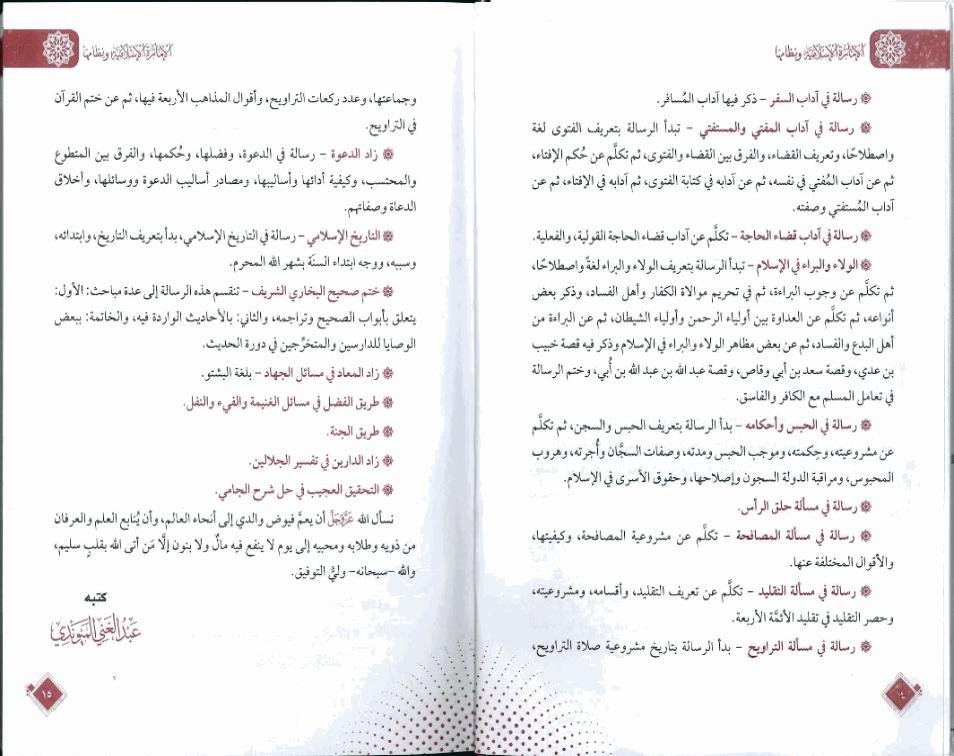 الإمارة الإسلامية ونظامها
رسالة في آداب السفر – ذكر فيها آداب المُسافر.
رسالة في آداب المفتي والمستفتي – تبدأ الرسالة بتعريف الفتوى لغة
واصطلاحًا، وتعريف القضاء، والفرق بين القضاء والفتوى، ثم تكلَّم عن حُكم الإفتاء،
ثم عن آداب المُفتي في نفسه، ثم عن آدابه في كتابة الفتوى، ثم آدابه في الإفتاء، ثم عن
آداب المُستفتي وصفته.
رسالة في آداب قضاء الحاجة – تكلَّم عن آداب قضاء الحاجة القولية، والفعلية.
الولاء والبراء في الإسلام – تبدأ الرسالة بتعريف الولاء والبراء لغةً واصطلاحًا،
ثم تكلَّم عن وجوب البراءة، ثم في تحريم موالاة الكفار وأهل الفساد، وذكر بعض
أنواعه، ثم تكلَّم عن العداوة بين أولياء الرحمن وأولياء الشيطان، ثم عن البراءة من
أهل البدع والفساد، ثم عن بعض مظاهر الولاء والبراء في الإسلام وذكر فيه قصة خبيب
بن عدي، وقصة سعد بن أبي وقاص، وقصة عبد الله بن عبد الله بن أُبي، وختم الرسالة
في تعامل المسلم مع الكافر والفاسق.
رسالة في الحبس وأحكامه – بدأ الرسالة بتعريف الحبس والسجن، ثم تكلَّم
عن مشروعيته، وحِكمته، وموجب الحبس ومدته، وصفات السجَّان وأُجرته، وهروب
المحبوس، ومراقبة الدولة السجون وإصلاحها، وحقوق الأسرى في الإسلام.
رسالة في مسألة حلق الرأس.
رسالة في مسألة المصافحة – تكلَّم عن مشروعية المصافحة، وكيفيتها،
والأقوال المختلفة عنها.
رسالة في مسألة التقليد – تكلَّم عن تعريف التقليد، وأقسامه، ومشروعيته،
وحصر التقليد في تقليد الأئمَّة الأربعة.
رسالة في مسألة التراويح – بدأ الرسالة بتاريخ مشروعية صلاة التراويح،
١٤
الإمارة الإسلامية ونظامها
وجماعتها، وعدد ركعات التراويح، وأقوال المذاهب الأربعة فيها، ثم عن ختم القرآن
في التراويح.
زاد الدعوة – رسالة في الدعوة، وفضلها، وحُكمها، والفرق بين المتطوع
والمحتسب، وكيفية أدائها وأساليبها، ومصادر أساليب الدعوة ووسائلها، وأخلاق
الدعاة وصفاتهم.
التاريخ الإسلامي – رسالة في التاريخ الإسلامي، بدأ بتعريف التاريخ، وابتدائه،
وسببه، ووجه ابتداء السنَة بشهر الله المحرم.
ختم صحيح البخاري الشريف – تنقسم هذه الرسالة إلى عدة مباحث: الأول:
يتعلق بأبواب الصحيح وتراجمه، والثاني: بالأحاديث الواردة فيه، والخاتمة: ببعض
الوصايا للدارسين والمتخرِّجين في دورة الحديث.
زاد المعاد في مسائل الجهاد – بلغة البشتو.
طريق الفضل في مسائل الغنيمة والفيء والنفل.
طريق الجنة.
زاد الدارين في تفسير الجلالين.
التحقيق العجيب في حل شرح الجامي.
نسأل الله عَزَّوَجَلَّ أن يعمَّ فيوض والدي إلى أنحاء العالم، وأن يُنابع العلم والعرفان
من ذويه وطلابه ومحبيه إلى يوم لا ينفع فيه مالٌ ولا بنون إلَّا مَن أتى الله بقلبٍ سليم،
والله –سبحانه– وليُّ التوفيق.
كتبه
عبد الغني
١٥